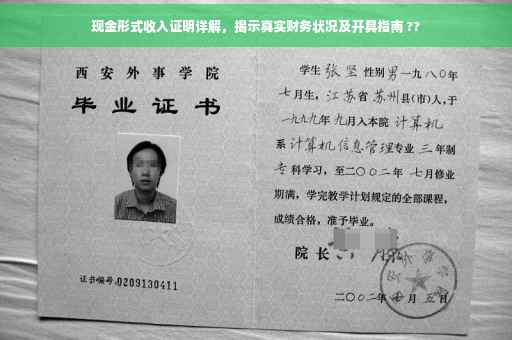 现金形式收入证明详解，揭示真实财务状况及开具指南 ??
西安外事学院
毕业证书
证书编号:0209130411
学生 张坚 性别 男 一九八〇年
七月生，江苏省 苏州县(市)人，于
一九九九年 九月入本院 计算机
系 计算机信息管理专业 三 年制
专 科学习，至二〇〇二年 七月修业
期满，学完教学计划规定的全部课程，
成绩合格，准予毕业。
院长
二〇〇二年 七 月 五 日